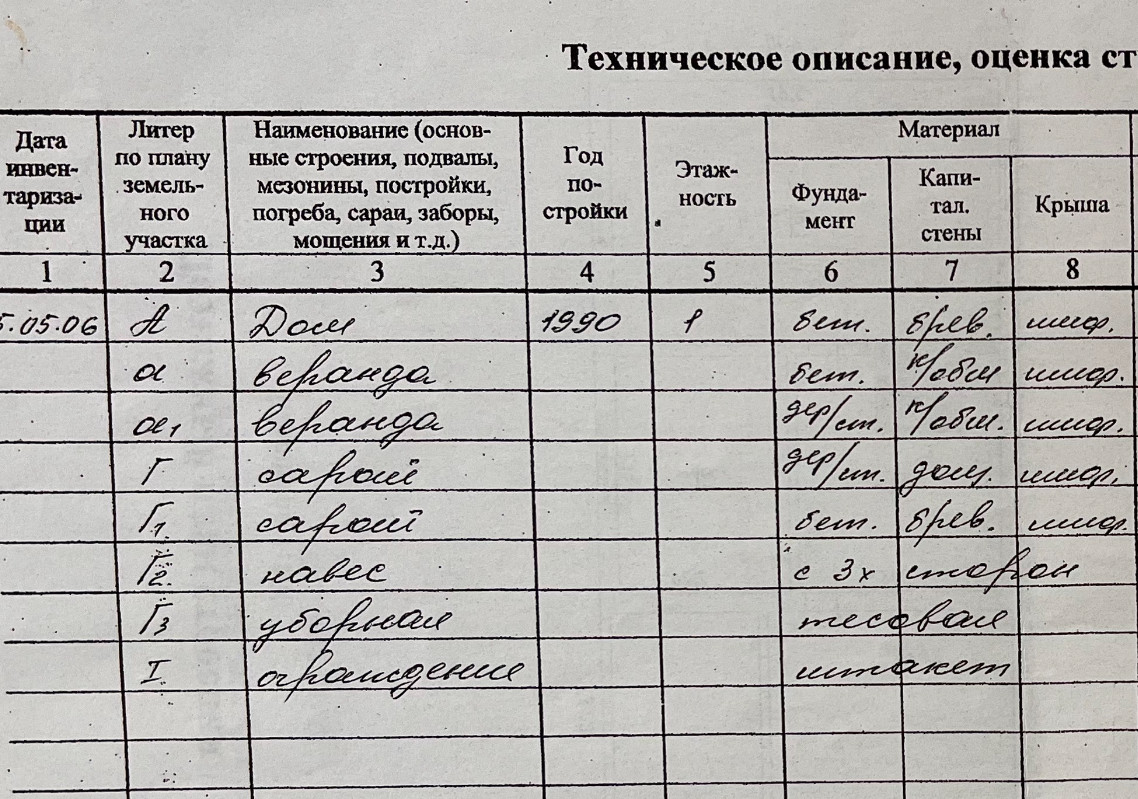 Техническое описание, оценка ст
Дата инвен-тариза-ции | Литер по плану земель-ного участка | Наименование (основ-ные строения, подвалы, мезонины, постройки, погреба, сараи, заборы, мощения и т.д.) | Год по-стройки | Этаж-ность | Материал
Фунда-мент | Капи-тал. стены | Крыша
1 2 3 4 5 6 7 8
5.05.06 А Дом 1990 1 бет. брев. шиф.
а веранда бет. к/обш шиф.
а1 веранда дер/ст. к/обш. шиф.
Г сарай дер/ст. дощ. шиф.
Г1 сарай бет. брев. шиф.
Г2 навес с 3х сторон
Г3 уборная тесовая
I ограждение штакет